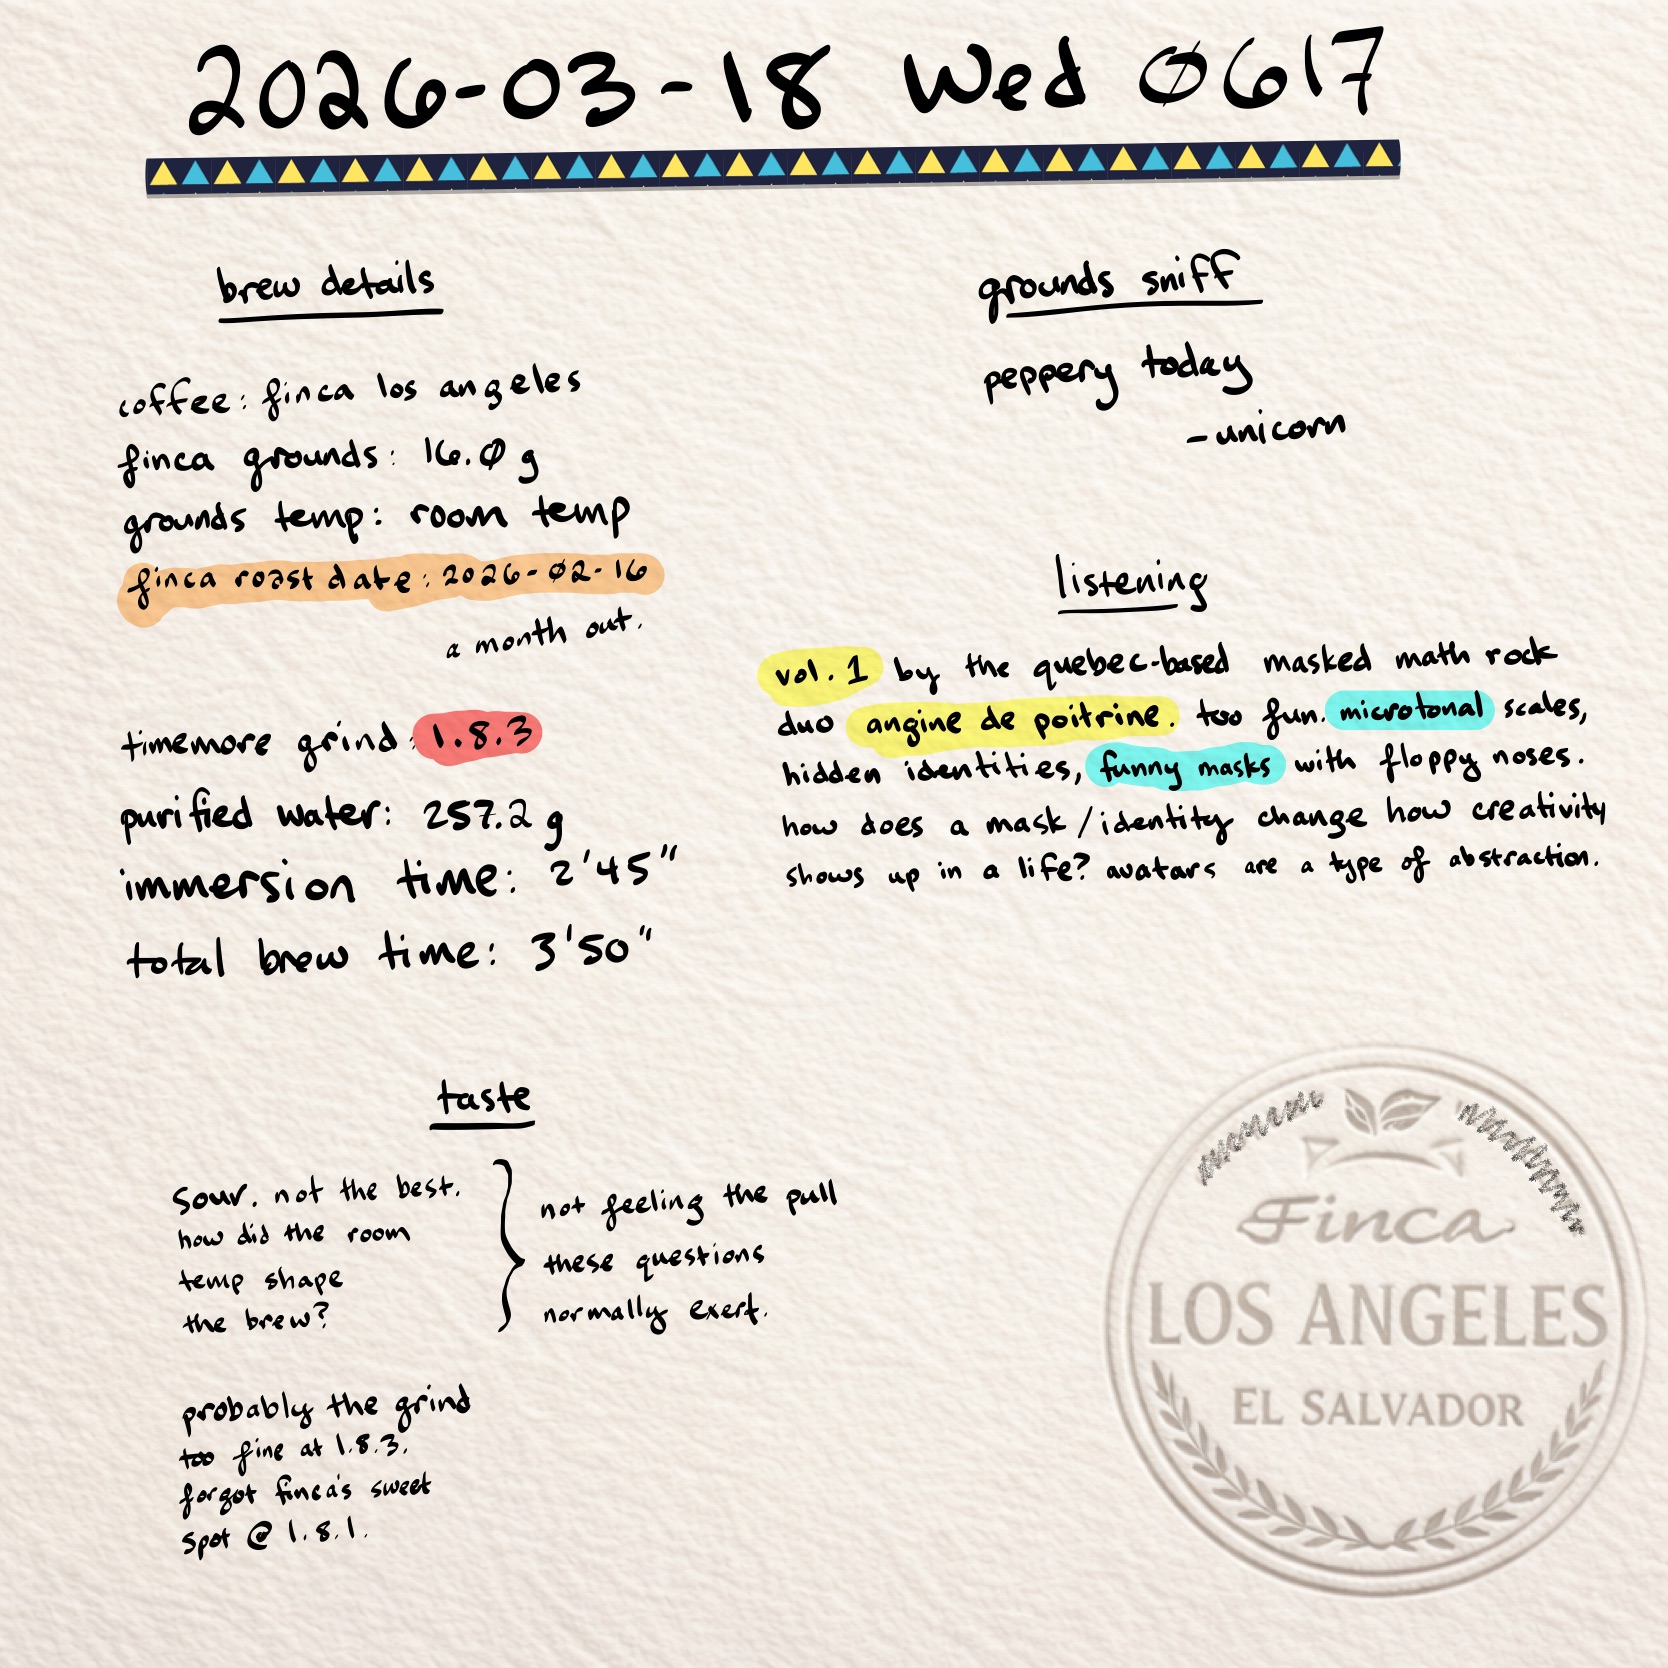 2026-03-18 Wed 0617
brew details
coffee: finca los angeles
finca grounds: 16.0 g
grounds temp: room temp
finca roast date: 2026-02-16
a month out.
timemore grind: 1.8.3
purified water: 257.2 g
immersion time: 2'45"
total brew time: 3'50"
taste
sour. not the best.
how did the room
temp shape
the brew?
not feeling the pull
these questions
normally exert.
probably the grind
too fine at 1.8.3.
forgot finca's sweet
spot @ 1.8.1.
grounds sniff
peppery today
- unicorn
listening
vol. 1 by the quebec-based masked math rock
duo angine de poitrine. too fun. microtonal scales,
hidden identities, funny masks with floppy noses.
how does a mask/identity change how creativity
shows up in a life? avatars are a type of abstraction.
Finca
LOS ANGELES
EL SALVADOR